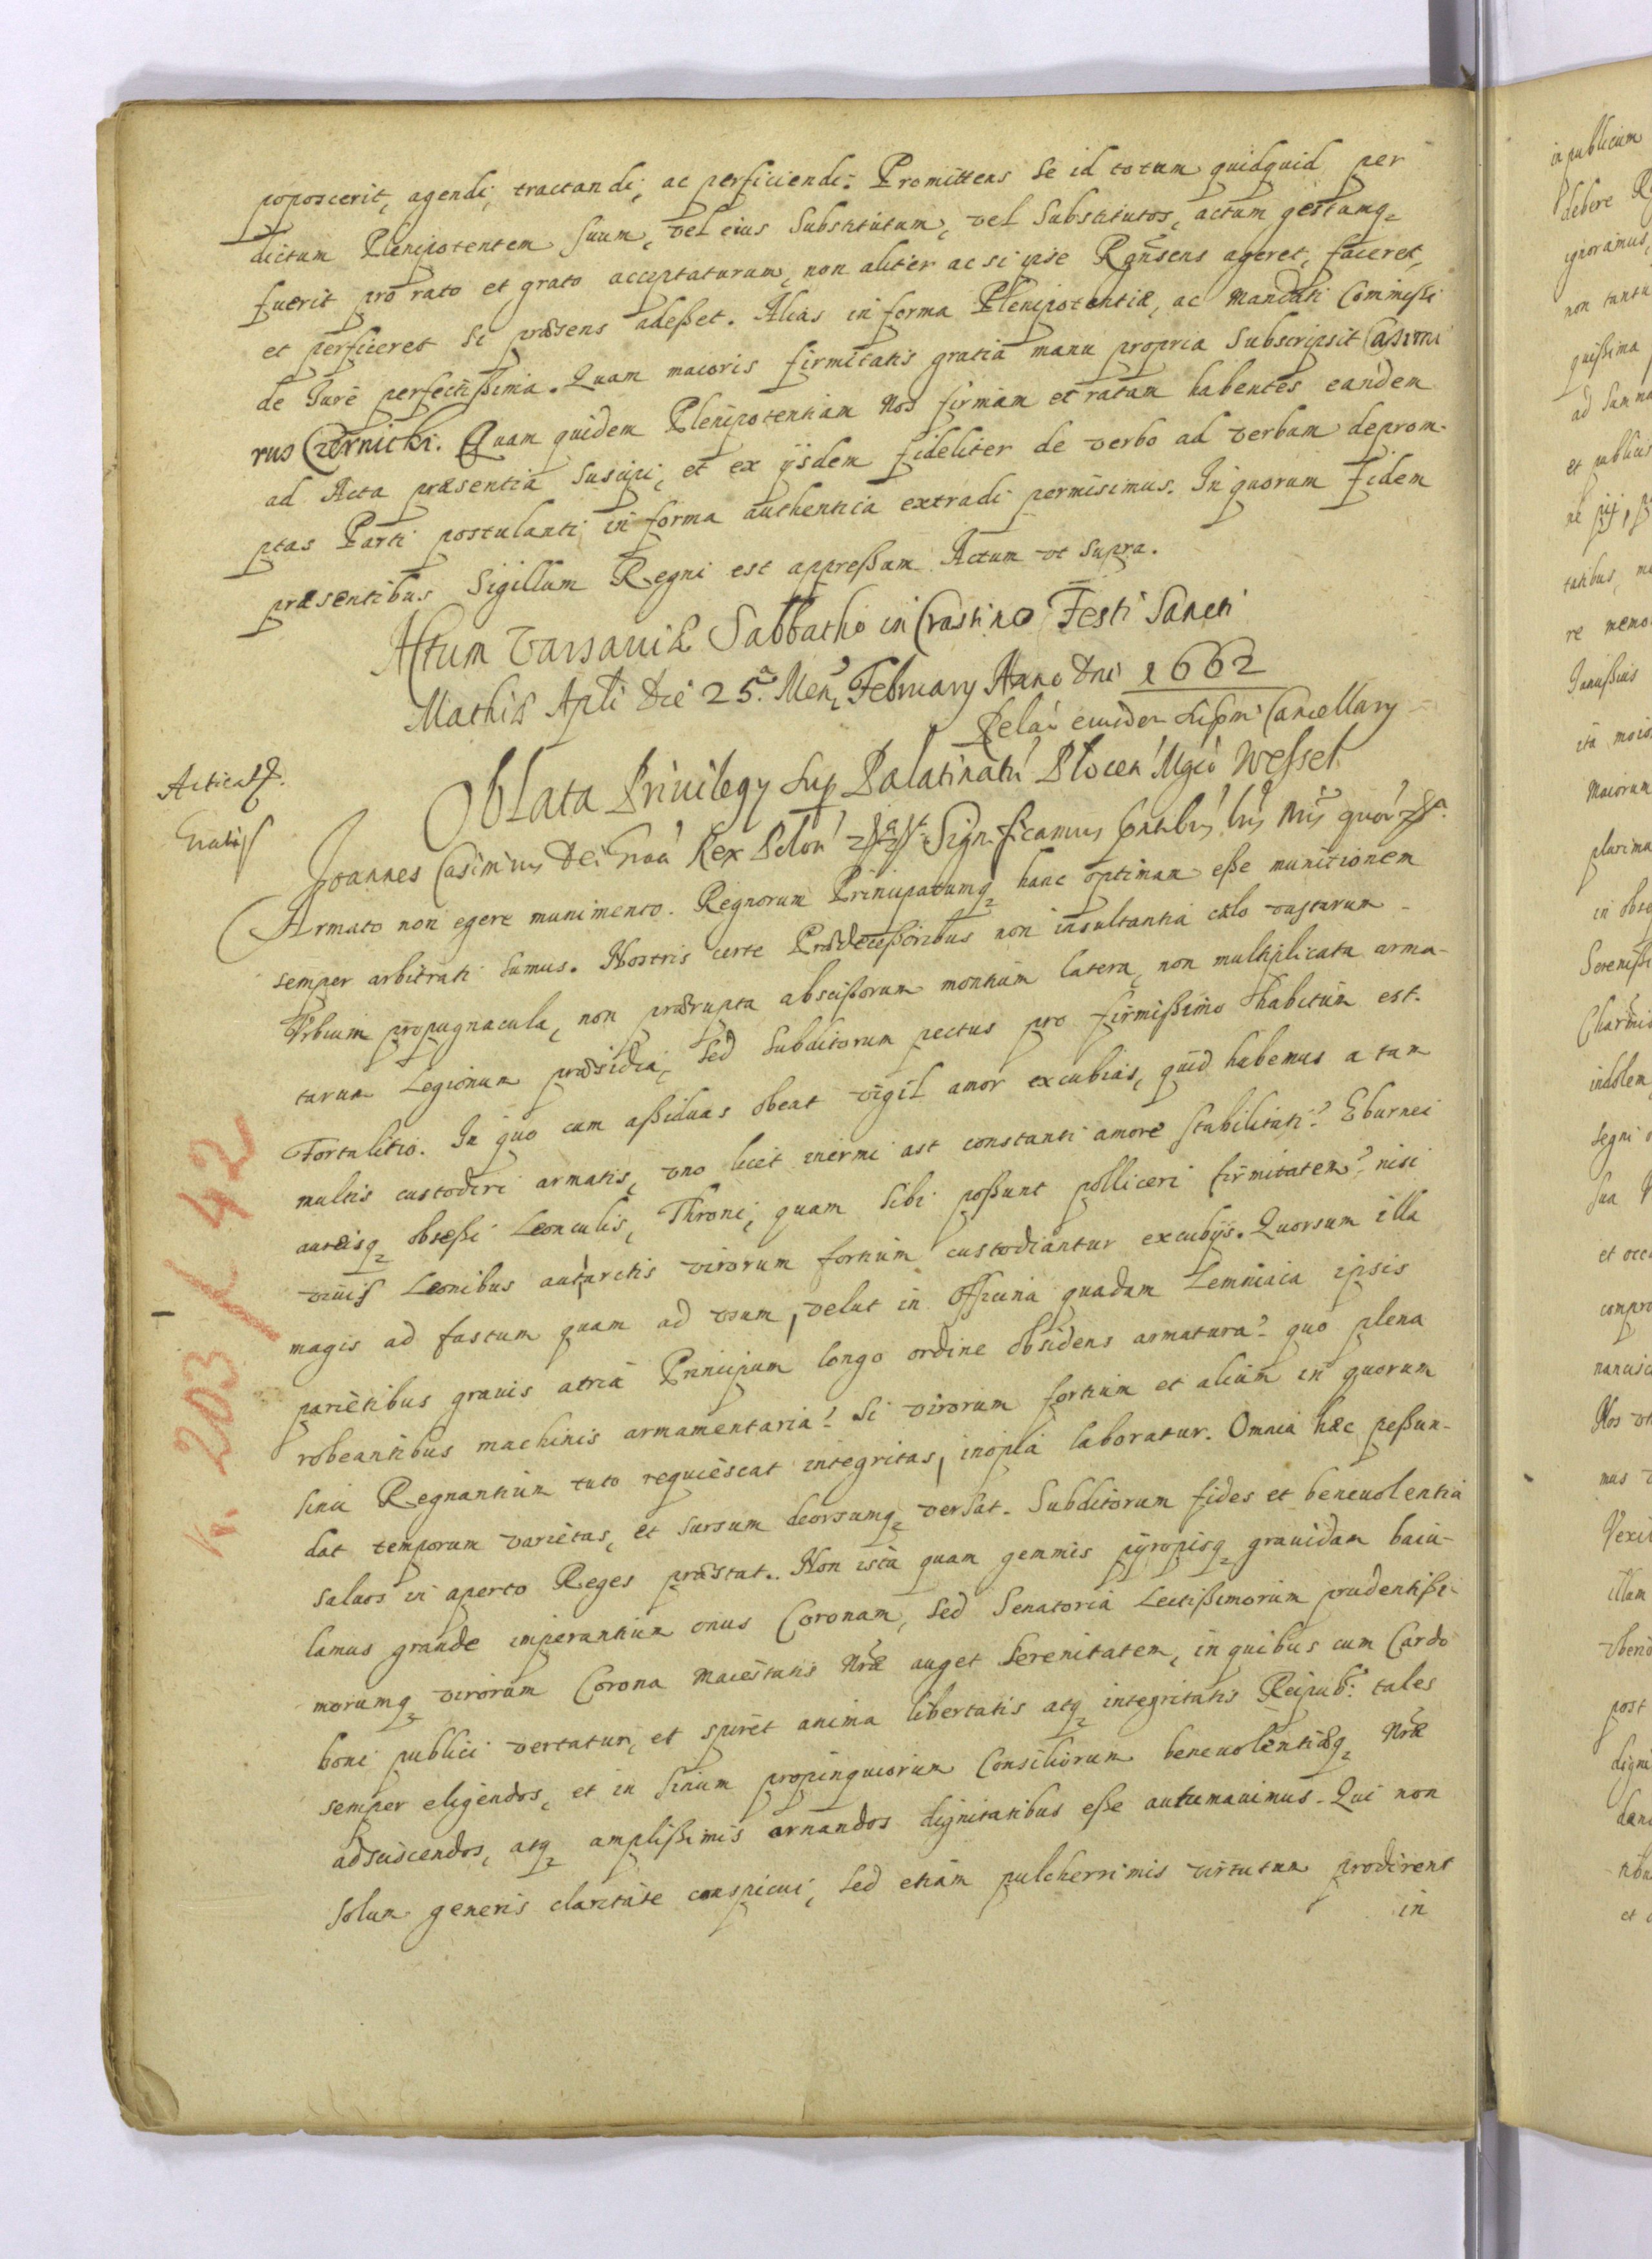 poposcerit, agendi, tractandi, ac perficiendi. Promittens se id totum quidquid per
dictum Plenipotentem suum, vel eius Substitutum, vel Substitutos, actum gestumq
fuerit pro rato et grato acceptaturum, non aliter ac si ipse Rgñsens ageret, faceret,
et perficeret si præsens adeßet. Alias in forma Plenipotentiæ, ac Mandati Commißi
de Jure perfectißima. Quam maioris firmitatis gratia manu propria subscripsit Casimi
rus Czernicki. Quam quidem Plenipotentiam Nos firmam et ratam habentes eandem
ad Acta præsentia suscipi, et ex ijsdem fideliter de verbo ad verbum deprom-
ptas Parti postulanti in forma authentica extradi permisimus. In quorum fidem
præsentibus Sigillum Regni est appreßum. Actum ut supra.
Actum Varsaviæ Sabbatho in Crastino Festi Sancti
Mathiæ Apli Die 25ᵃ Mens February Anno Dni 1662
Relãe eiusdem Cancellary
Oblata Privilegy sup Palatinatũ Plocen Mgco Wessel
Acticat
Gratis
Joannes Casimirus Dei Graa Rex Polon Significamus pntibus lris nris quor
Armato non egere munimento. Regnorum Principatumq hanc optimam eße munitionem
semper arbitrati sumus. Nostris certe Prædeceßoribus non insultantia cælo vastarum
Vrbium propugnacula, non prærupta abscißorum montium latera, non multiplicata arma-
tarum Legionum præsidia, sed subditorum pectus pro firmißimo habitum est
Fortalitio. In quo cum aßiduas obeat vigil amor excubias, quid habemus a tam
multis custodiri armatis, vno licet inermi ast constanti amore stabilitati? Eburnei
aureisq obseßi Leonculis, Throni, quam sibi poßunt polliceri firmitatem? nisi
vivis Leonibus virorum fortium custodiantur excubijs. Quorsum illa
magis ad fastum quam ad vsum, velut in Officina quadam Lemniaca ipsis
parietibus gravis atria Principum longo ordine obsidens armatura? quo plena
robeantibus machinis armamentaria? Si virorum fortium et alium in quorum
sinu Regnantium tuto requiescat integritas, inopia laboratur. Omnia hæc peßun-
dat temporum varietas, et sursum deorsumq versat. Subditorum fides et benevolentia
salvos in aperto Reges præstat. Non ista quam gemmis pyropisq gravidam baiu-
lamus grande imperantium onus Coronam, sed Senatoria Lectißimorum prudentißi-
morumq virorum Corona Maiestatis Nræ auget Serenitatem, in quibus cum Cardo
boni publici vertatur, et spiret anima libertatis atq integritatis Reipub: tales
semper eligendos, et in sinum propinquiorum Consiliorum benevolentiæq Nræ
adsciscendos, atq amplißimis ornandos dignitatibus eße autumavimus. Qui non
solum generis claritate conspicui, sed etiam pulcherrimis virtutum prodirent
in
k. 203 / 42
in publicum
debere
ignoramus,
non tantu
quißima
ad
et publicis
tatibus,
re
Janußius
ita
Maiorum
plurima
in
Sereniß
indolem
segni
sua
et
compro
nanisci
Nos
mus
illam
post
digni
et